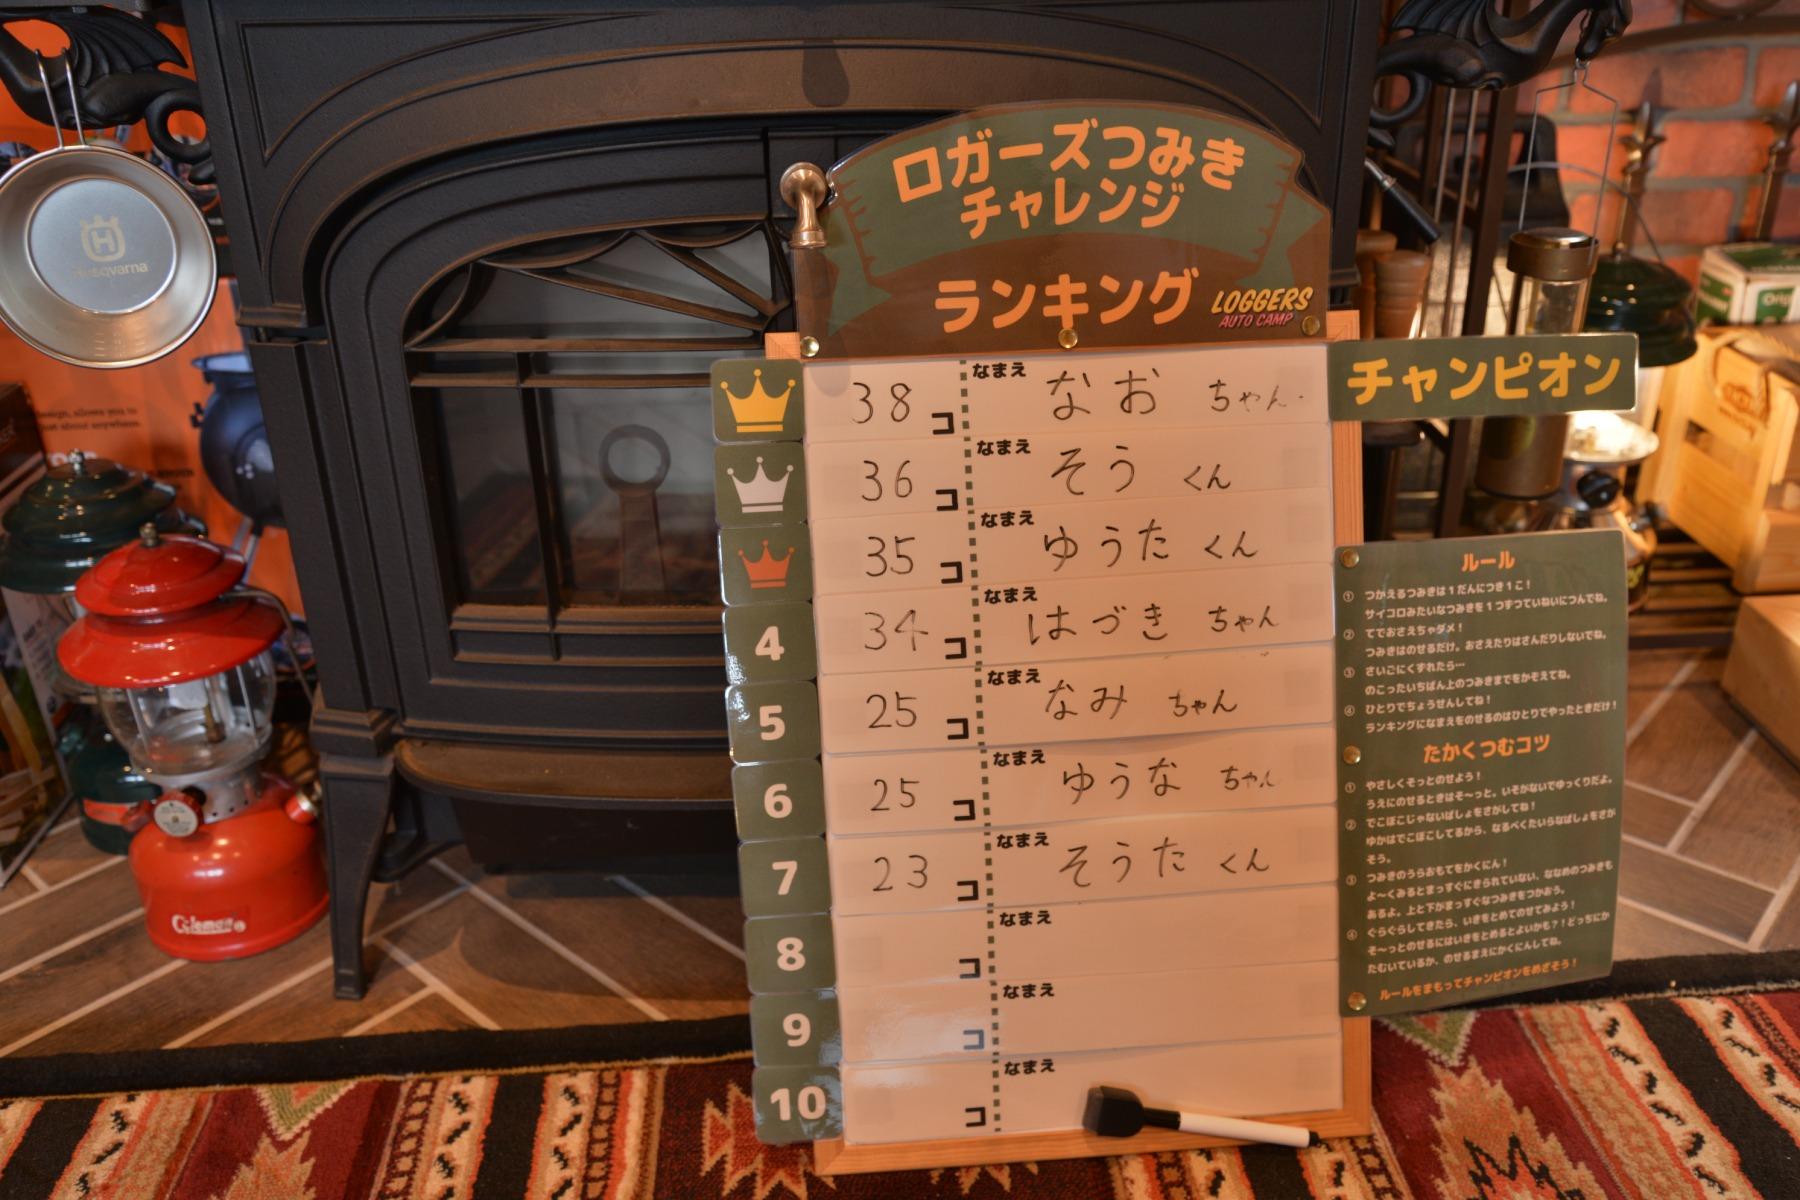 ロガーズつみき
チャレンジ
ランキング
LOGGERS
AUTO CAMP
チャンピオン
38コ なまえ なお ちゃん
36コ なまえ そう くん
35コ なまえ ゆうた くん
4 34コ なまえ はづき ちゃん
5 25コ なまえ なみ ちゃん
6 25コ なまえ ゆうな ちゃん
7 23コ なまえ そうた くん
8 コ なまえ
9 コ なまえ
10 コ なまえ
ルール
① つかえるつみきは1だんにつき1こ!
サイコロみたいなつみきを1つずつていねいにつんでね。
② てでおさえちゃダメ!
つみきはのせるだけ。おさえたりはさんだりしないでね。
③ さいごにくずれたら…
のこったいちばん上のつみきまでをかぞえてね。
④ ひとりでちょうせんしてね!
ランキングになまえをのせるのはひとりでやったときだけ!
たかくつむコツ
① やさしくそっとのせよう!
うえにのせるときはそ〜っと。いそがないでゆっくりだよ。
② でこぼこじゃないばしょをさがしてね!
ゆかはでこぼこしてるから、なるべくたいらなばしょをさが
そう。
③ つみきのうらおもてをかくにん!
よ〜くみるとまっすぐにきられていない、ななめのつみきも
あるよ。上と下がまっすぐなつみきをつかおう。
④ ぐらぐらしてきたら、いきをとめてのせてみよう!
そ〜っとのせるにはいきをとめるとよいかも?!どっちにか
たむいているか、のせるまえにかくにんしてね。
ルールをまもってチャンピオンをめざそう!
H
Husqvarna
design, allows you to
just about anywhere.
Coleman